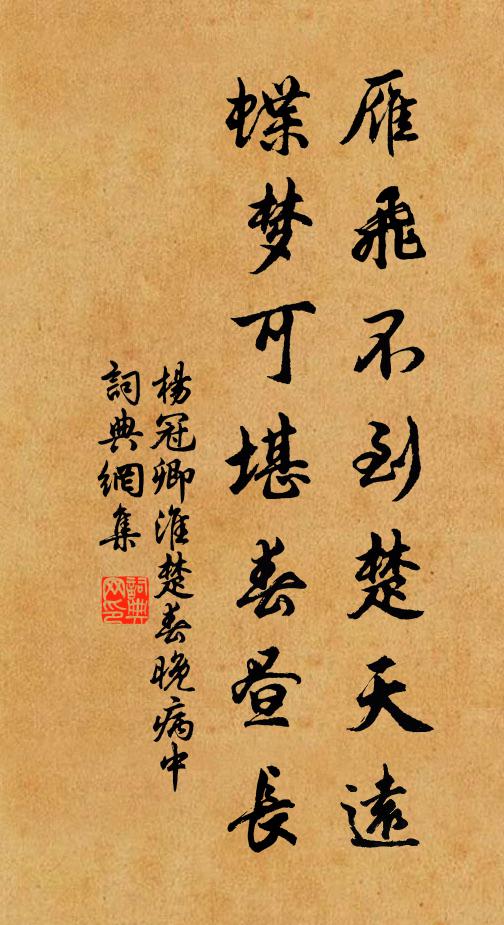 雁飛不到楚天遠
蝶梦可堪春昼長
楊冠卿淮楚春晚病中
詞典網集
詞典网印